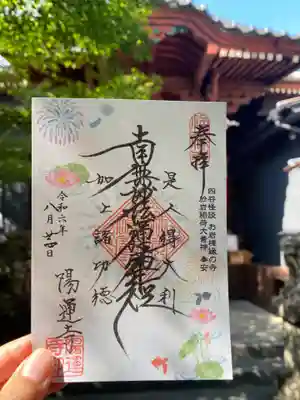 奉拝
四谷怪談 お岩様縁の寺
於岩稲荷大善神 奉安
是人得大利
南無妙法蓮華経
加上諸功徳
令和六年
八月廿四日
陽運寺